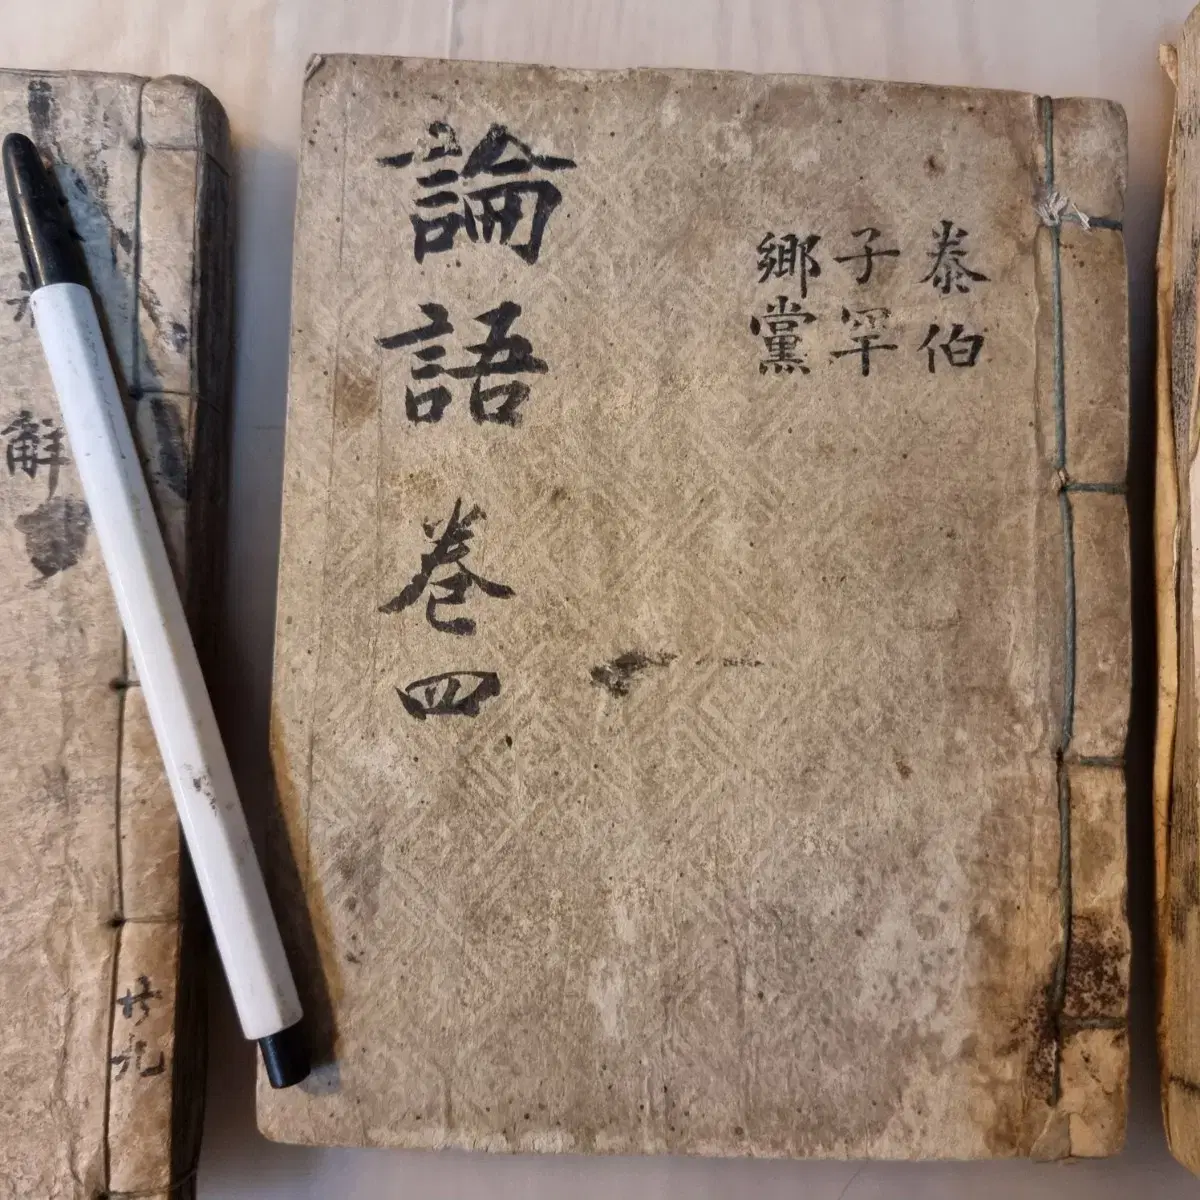 論語 卷四
泰伯
子罕
鄕黨
解
共九